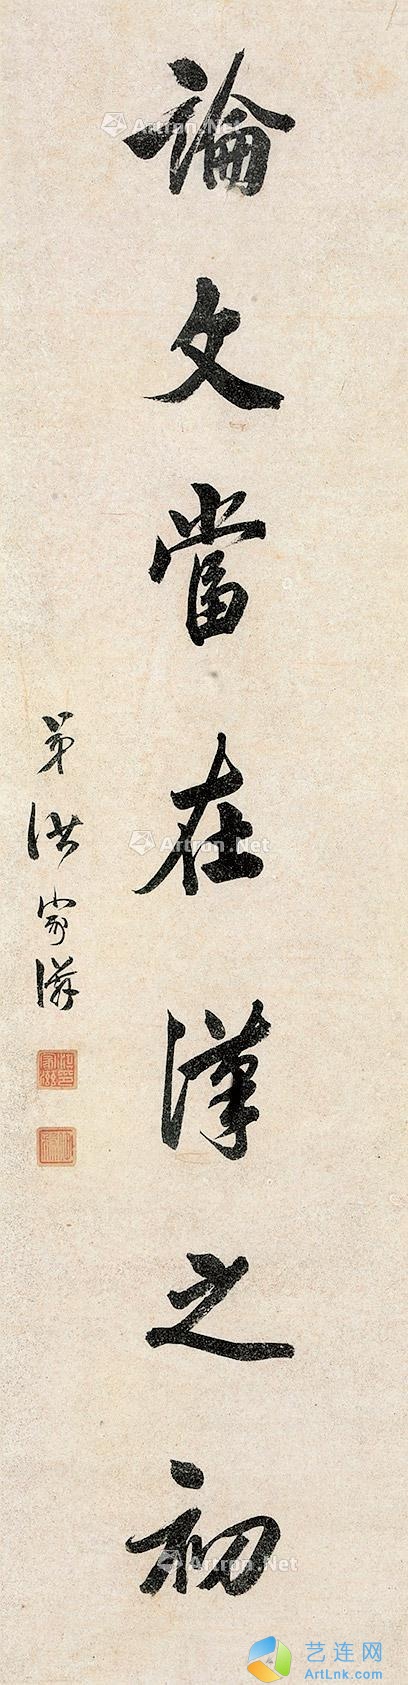 論文當在漢之初
弟洪家
Artron.Net
Artron.Net
Artron.Net
艺连网
ArtLnk.com